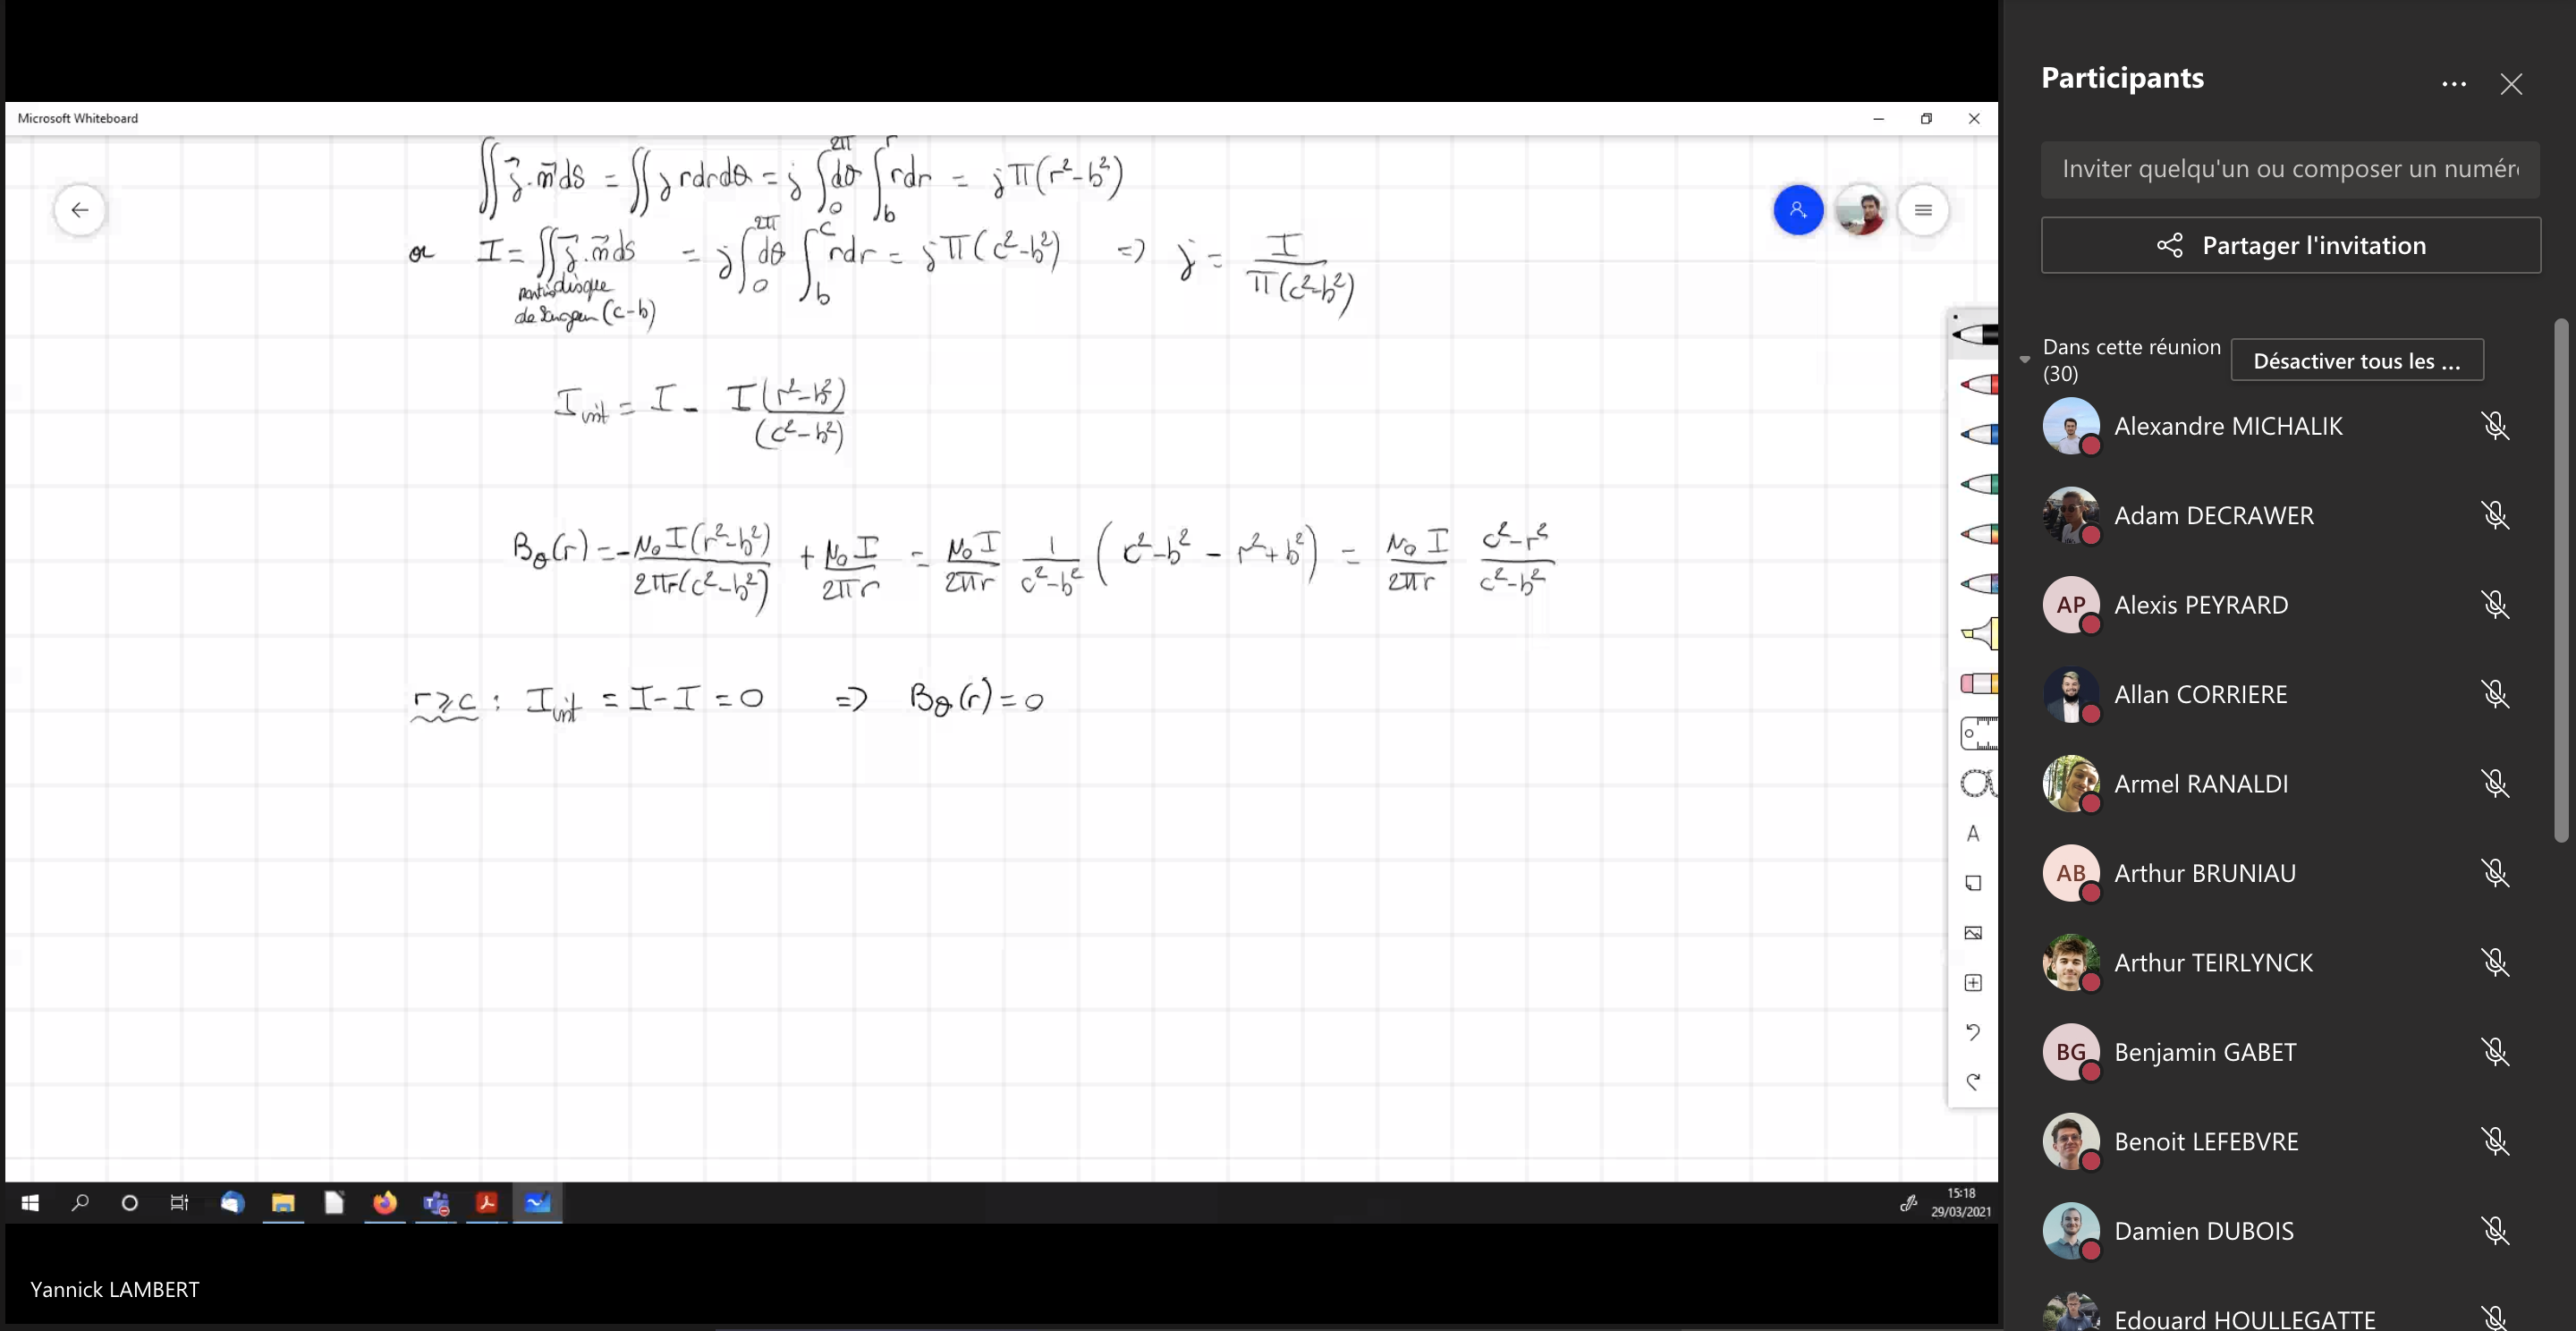 Microsoft Whiteboard
∬ j⃗.n⃗ dS = ∬ j rdrdθ = j ∫₀^2π dθ ∫_b^r rdr = jπ(r²-b²)
or I = ∬ j⃗.n⃗ dS = j ∫₀^2π dθ ∫_b^c rdr = jπ(c²-b²) => j = I / π(c²-b²)
disque
de (c-b)
I_int = I - I(r²-b²) / (c²-b²)
Bθ(r) = - μ₀I(r²-b²) / 2πr(c²-b²) + μ₀I / 2πr = μ₀I / 2πr 1 / c²-b² (c²-b² - r²+b²) = μ₀I / 2πr c²-r² / c²-b²
r⩾c : I_int = I-I = 0 => Bθ(r) = 0
A
15:18
29/03/2021
Yannick LAMBERT
Participants
Inviter quelqu'un ou composer un numér
Partager l'invitation
Dans cette réunion
(30)
Désactiver tous les ...
Alexandre MICHALIK
Adam DECRAWER
AP Alexis PEYRARD
Allan CORRIERE
Armel RANALDI
AB Arthur BRUNIAU
Arthur TEIRLYNCK
BG Benjamin GABET
Benoit LEFEBVRE
Damien DUBOIS
Edouard HOULLEGATTE